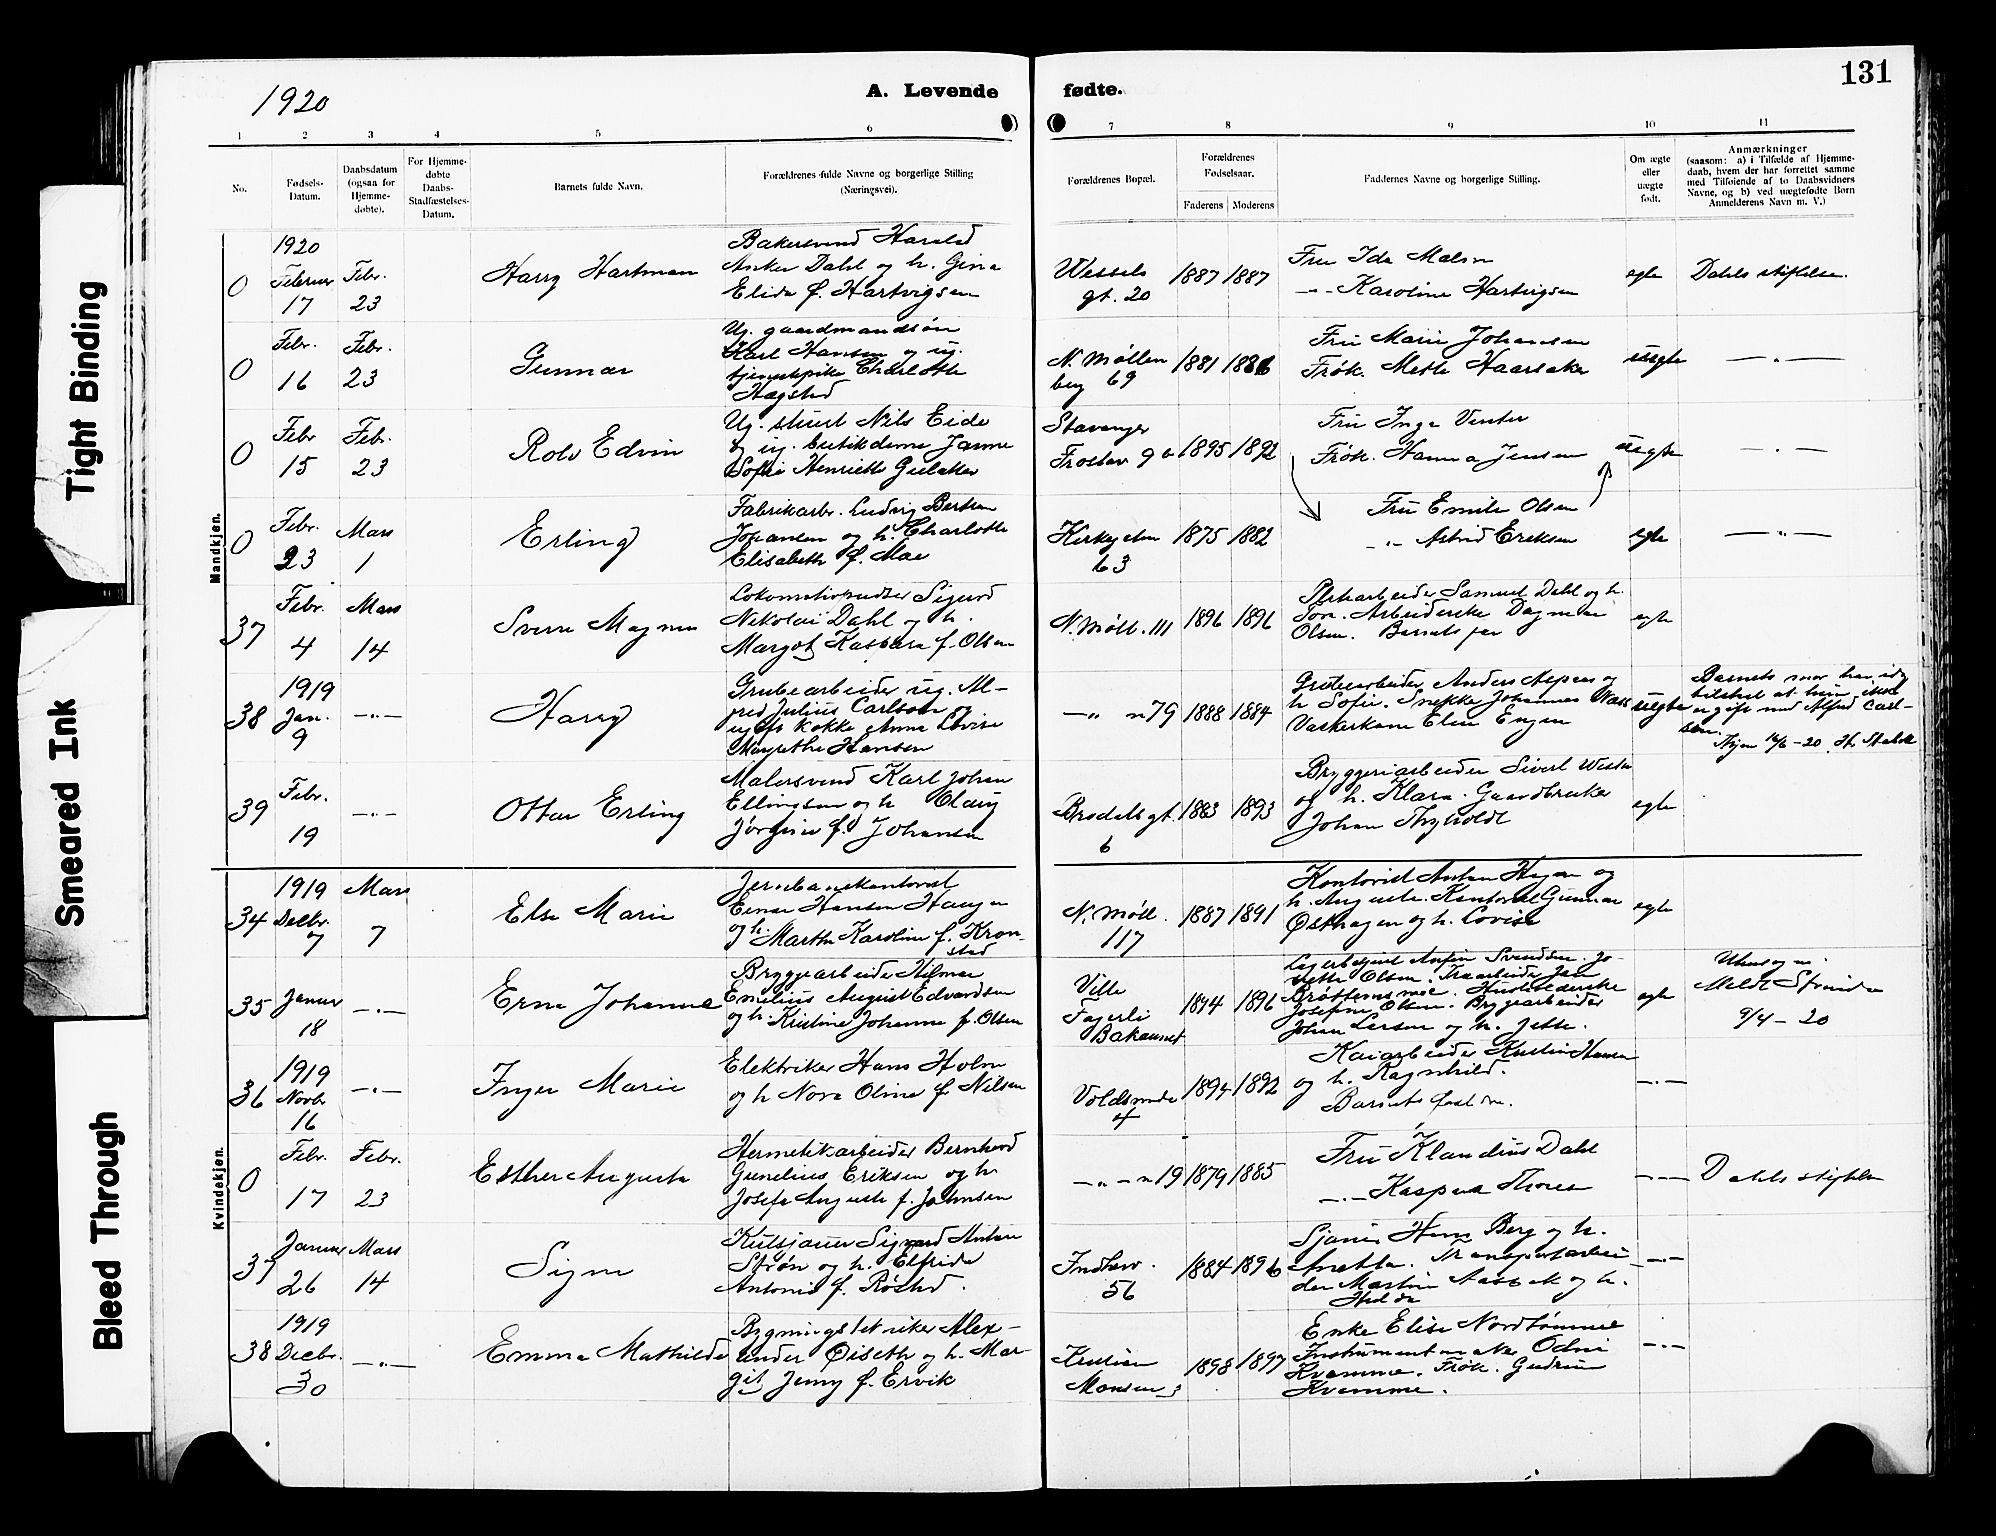 131
1920
A. Levende fødte.
Tight Binding
Smeared Ink
Bleed Through
1 2 3 4 5 6 7 8 9 10 11
No.
Fødsels-
Datum.
Daabsdatum
(ogsaa for
Hjemme-
døbte).
For Hjemme-
døbte
Daabs-
Stadfæstelses-
Datum.
Barnets fulde Navn.
Forældrenes fulde Navne og borgerlige Stilling
(Næringsvei).
Forældrenes Bopæl.
Forældrenes
Fødselsaar.
Faderens Moderens
Faddernes Navne og borgerlige Stilling.
Om ægte
eller
uægte
født.
Anmærkninger
(saasom: a) i Tilfælde af Hjemme-
daab, hvem der har forrettet samme
med Tilføiende af to Daabsvidners
Navne, og b) ved uægtefødte Børn
Anmelderens Navn m. V.)
Mandkjøn.
0
1920
Februar
17
Febr.
23
Harry Hartman
Bakersvend Harald
Anker Dahl og h. Gina
Elida f. Hartvigsen
Wessels
gt. 20
1887 1887
Fru Ida Malm
-"- Karoline Hartvigsen
egte
Dahls stiftelse.
0
Febr.
16
Febr.
23
Gunnar
Ug. gaardmandsøn
Karl Hansen og ug.
tjenestepike Charlotte
Hagstad
N. Møllen
berg 69
1881 1886
Fru Marie Johansen
Frøk. Mette Haarsaker
uegte
—"—
0
Febr
15
Febr.
23
Rolv Edvin
Ug. stuert Nils Eide
og ug. butikdame Janna
Sofie Henriette Gulaker
Stavanger
Frostav 9 a
1895 1892
Fru Inga Venter
Frøk. Hanna Jensen
uegte
—"—
0
Febr.
23
Mars
1
Erling
Fabrikarb. Ludvig Bertran
Johansen og h. Charlotte
Elisabeth f. Moe
Kirkegaten
63
1875 1882
Fru Emilie Olsen
-"- Astrid Eriksen
egte
—"—
37
Febr.
4
Mars
14
Sverre Magnus
Lokomotivpudser Sigurd
Nikolai Dahl og h.
Margot Kaspara f. Olsen
N. Møll. 111
1896 1896
Platearbeider Samuel Dahl og h.
Tora. Arbeiderske Dagmar
Olsen. Barnets far
egte
38
1919
Jan.
9
—"—
Harry
Grubearbeider ug. Al-
fred Julius Carlson og
ugift kokke Anna Lovise
Margrethe Hansen
—"— 79
1888 1884
Grubearbeider Anders Aspaas og
h Sofie. Snekker Johannes Næss
Vaskerkone Elen Engen
uegte
Barnets mor har idag
tilstaat at hun ikke
er gift med Alfred Carl-
son.
16/6 - 20.
39
Febr.
19
—"—
Ottar Erling
Malersvend Karl Johan
Ellingsen og h Olaug
Jørgine f. Johansen
Brodals gt.
6
1883 1893
Bryggeriarbeider Sivert
og h. Klara. Gaardbruker
Johan Thyholdt
egte
Kvindekjøn.
34
1919
Decbr.
7
Mars
7
Else Marie
Jernbanekontorist
Einar Hansen Haugen
og h. Martha Karoline f. Kron-
stad
N. Møll.
117
1887 1891
Kontorist Anton Hagen og
h. Augusta. Kontorist Gunnar
Østhagen og h. Lovise
egte
35
Januar
18
—"—
Erna Johanna
Bryggearbeider Hilmar
Emilius August Edvardsen
og h. Kristine Johanna f. Olsen
Villa
Fagerli
Bakaunet
1894 1896
Lagerbetjent Svendsen. Jo-
sette Olsen. Træarbeider Jon
Brøttemsmoe. Husholderske
Josefine Olsen. Bryggearbeider
Johan Larsen og h. Jette.
egte
Utensogns.
Meldt Strinda
9/4 - 20
36
1919
Novbr
16
—"—
Inger Marie
Elektriker Hans Holm
og h Nora Oline f. Nilsen
Voldsminde
4
1894 1892
Kaiarbeider Kristian Hansen
og h. Ragnhild.
Barnets forældre.
—"—
0
Febr.
17
Febr.
23
Esther Augusta
Hermetikarbeider Bernhard
Gunelius Eriksen og h
Josefa Augusta f. Johnsen
—"— 19
1879 1885
Fru Klaudius Dahl
-"- Kaspara Thoresen
—"—
Dahls stiftelse
37
Januar
26
Mars
14
Signe
Kulsjauer Sigvard Anton
Strøm og h. Elfrida
Antonie f. Røstad.
Indherv.
56
1884 1896
Sjauer Hans Berg og h.
Anetta. Transportarbei-
der Martin Aasbak og h.
Hulda
—"—
38
1919
Decbr.
30
—"—
Emma Mathilde
Bygningstekniker Alex-
ander Øiseth og h. Mar-
git Jenny f. Ervik
Kristian
Monsen 3
1898 1897
Enke Elise Nordtømme
Instrumentmaker Odin
Kvamme. Frøk. Gudrun
Kvamme.
—"—